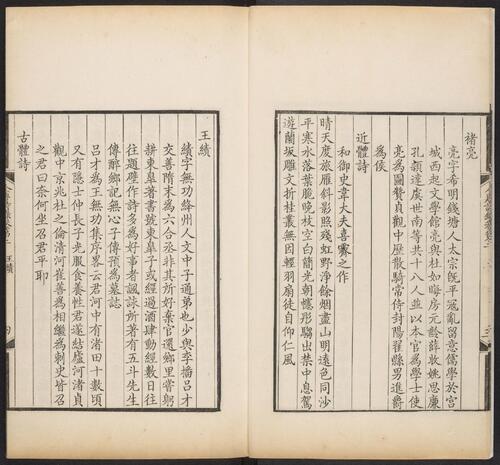 褚亮
亮字希明錢塘人太宗旣平寇亂留意儒學於宮
城西起文學館亮與杜如晦房元齡薛收姚思廉
孔頴達虞世南等共十八人並以本官為學士使
亮為圖贊貞觀中歷散騎常侍封陽翟縣男進爵
為侯
近體詩
和御史韋大夫喜霽之作
晴天度旅雁斜影照殘虹野淨餘烟盡山明遠色同沙
平寒水落葉脆晚枝空白簡光朝幰彤騶出禁中息駕
遊蘭坂雕文折桂叢無因輕羽扇徒自仰仁風
王績
績字無功絳州人文中子通弟也少與李播呂才
交善隋末為六合丞非其所好棄官還鄉里嘗躬
耕東臯著書號東臯子或經過酒肆動經數日往
往題壁作詩多為好事者諷詠所著有五斗先生
傳醉鄉記無心子傳預為墓誌
呂才為王無功集序畧云君河中有渚田十數頃
又有隱士仲長子光服食養性君遂結廬河渚貞
觀中京兆杜之倫清河崔善為相繼為刺史皆召
之君曰奈何坐召君平耶
古體詩
王績